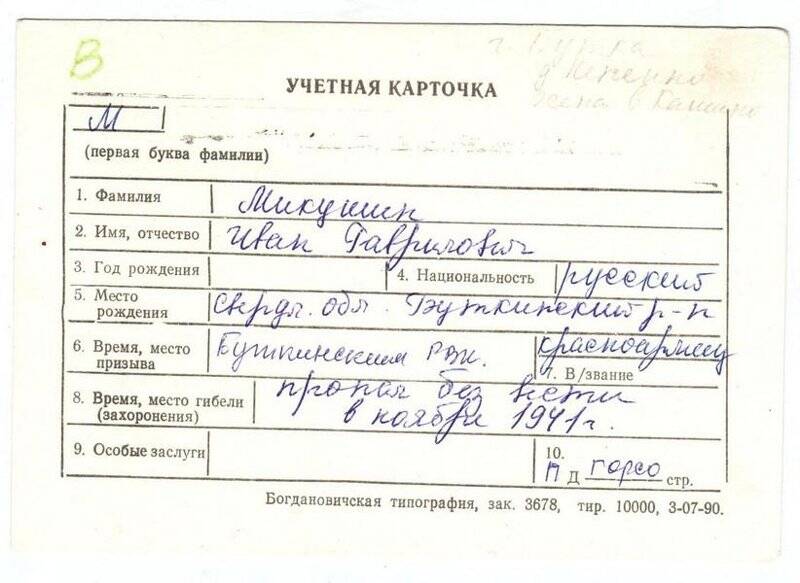 В
УЧЕТНАЯ КАРТОЧКА
М
(первая буква фамилии)
1. Фамилия Микушин
2. Имя, отчество Иван Гаврилович
3. Год рождения 4. Национальность русский
5. Место рождения Свердл. обл. Буткинский р-н
6. Время, место призыва Буткинским РВК. красноармеец
7. В/звание
8. Время, место гибели (захоронения) пропал без вести
в ноябре 1941 г.
9. Особые заслуги
10.
П Д горсо стр.
Богдановичская типография, зак. 3678, тир. 10000, 3-07-90.